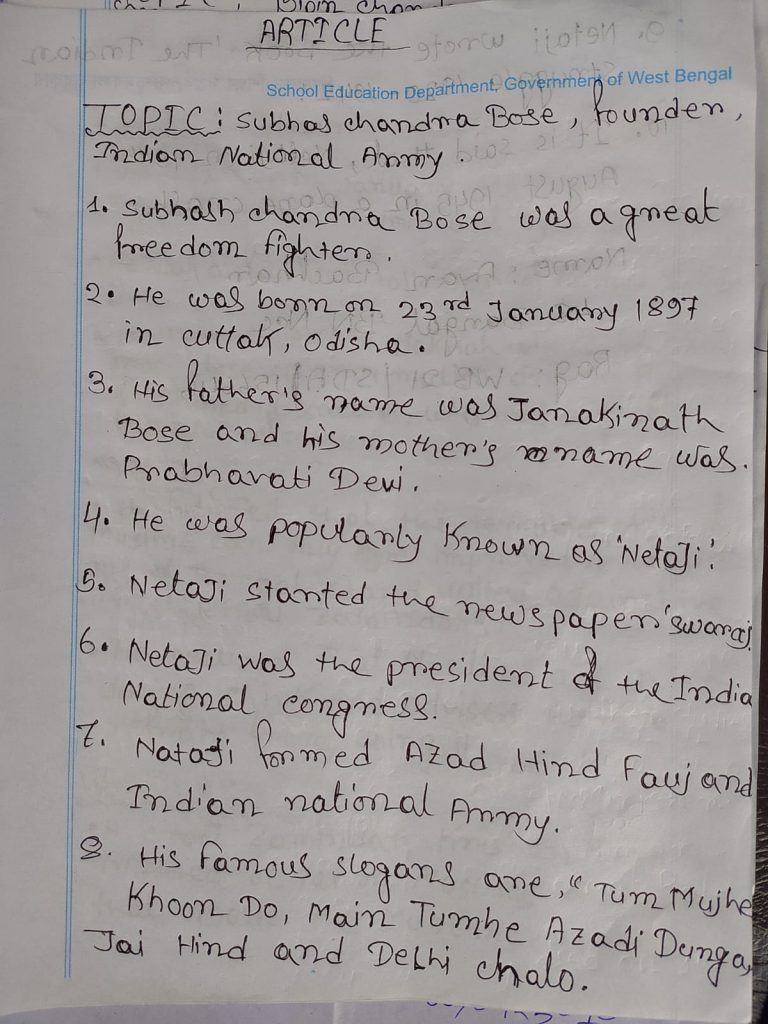 ARTICLE
School Education Department, Government of West Bengal
TOPIC : Subhas chandra Bose, founder,
Indian National Army.
1. Subhash chandra Bose was a great
freedom fighter.
2. He was born on 23rd January 1897
in cuttak, Odisha.
3. His father's name was Janakinath
Bose and his mother's name was.
Prabhavati Devi.
4. He was popularly Known as 'NetaJi'.
5. NetaJi started the newspaper 'swaraj
6. NetaJi was the president of the India
National congress.
7. NataJi formed Azad Hind Fauj and
Indian national Army.
8. His famous slogans are, " Tum Mujhe
Khoon Do, Main Tumhe Azadi Dunga,
Jai Hind and Delhi chalo.